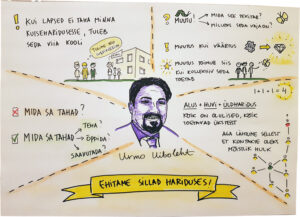 ! KUI LAPSED EI TAHA MINNA
KUTSEHARIDUSSE, TULEB
SEDA VIIA KOOLI
? MUUTU
→ MIDA SEE TEKITAB?
→ MILLEKS SEDA VAJAN?
! MUUTUS KUI VÄÄRTUS
MUUTUS TOIMUB SIIS
KUI KOLLEKTIIV SEDA
TOETAB
1+1+1=4
ALUS + HUVI + ÜLDHARIDUS
KÕIK ON OLULISED, KÕIK
TOETAVAD ÜKSTEIST
AGA LÄHTUME SELLEST
ET KONTAKTE OLEKS
MÕISTLIK HULK
MIDA SA TAHAD?
MIDA SA TAHAD
→ TEHA?
→ ÕPPIDA?
→ SAAVUTADA?
Urmo Uiboleht
EHITAME SILLAD HARIDUSES!